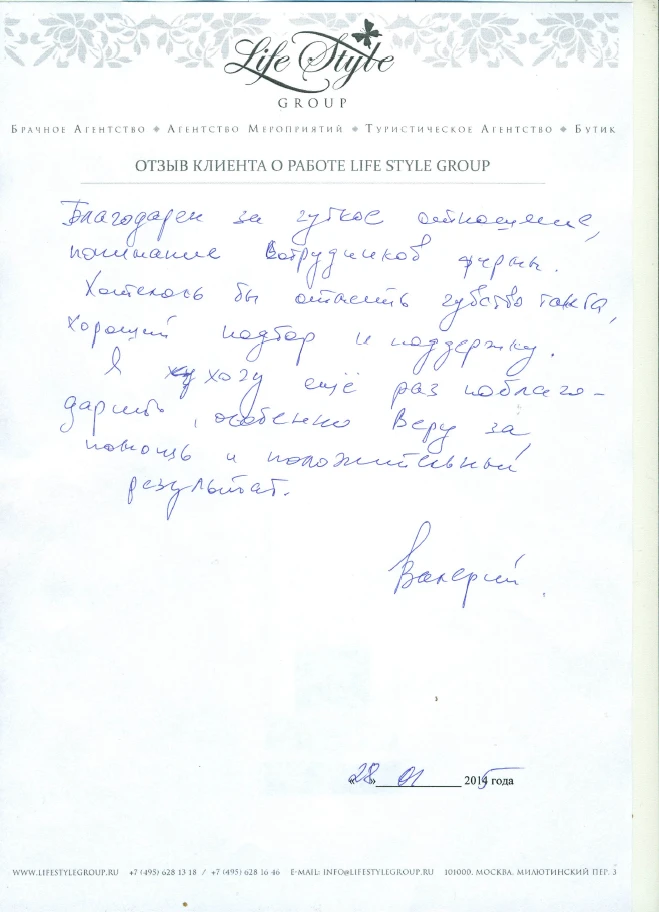 Life Style
GROUP
Брачное Агентство ◆ Агентство Мероприятий ◆ Туристическое Агентство ◆ Бутик
ОТЗЫВ КЛИЕНТА О РАБОТЕ LIFE STYLE GROUP
Благодарен за чуткое отношение,
понимание сотрудников фирмы.
Хотелось бы отметить чувство такта,
хороший подбор и поддержку.
Я хочу ещё раз поблаго-
дарить, особенно Веру за
помощь и положительный
результат.
Валерий
«28» 01 2015 года
WWW.LIFESTYLEGROUP.RU +7 (495) 628 13 18 / +7 (495) 628 16 46 E-MAIL: INFO@LIFESTYLEGROUP.RU 101000, МОСКВА, МИЛЮТИНСКИЙ ПЕР. 3